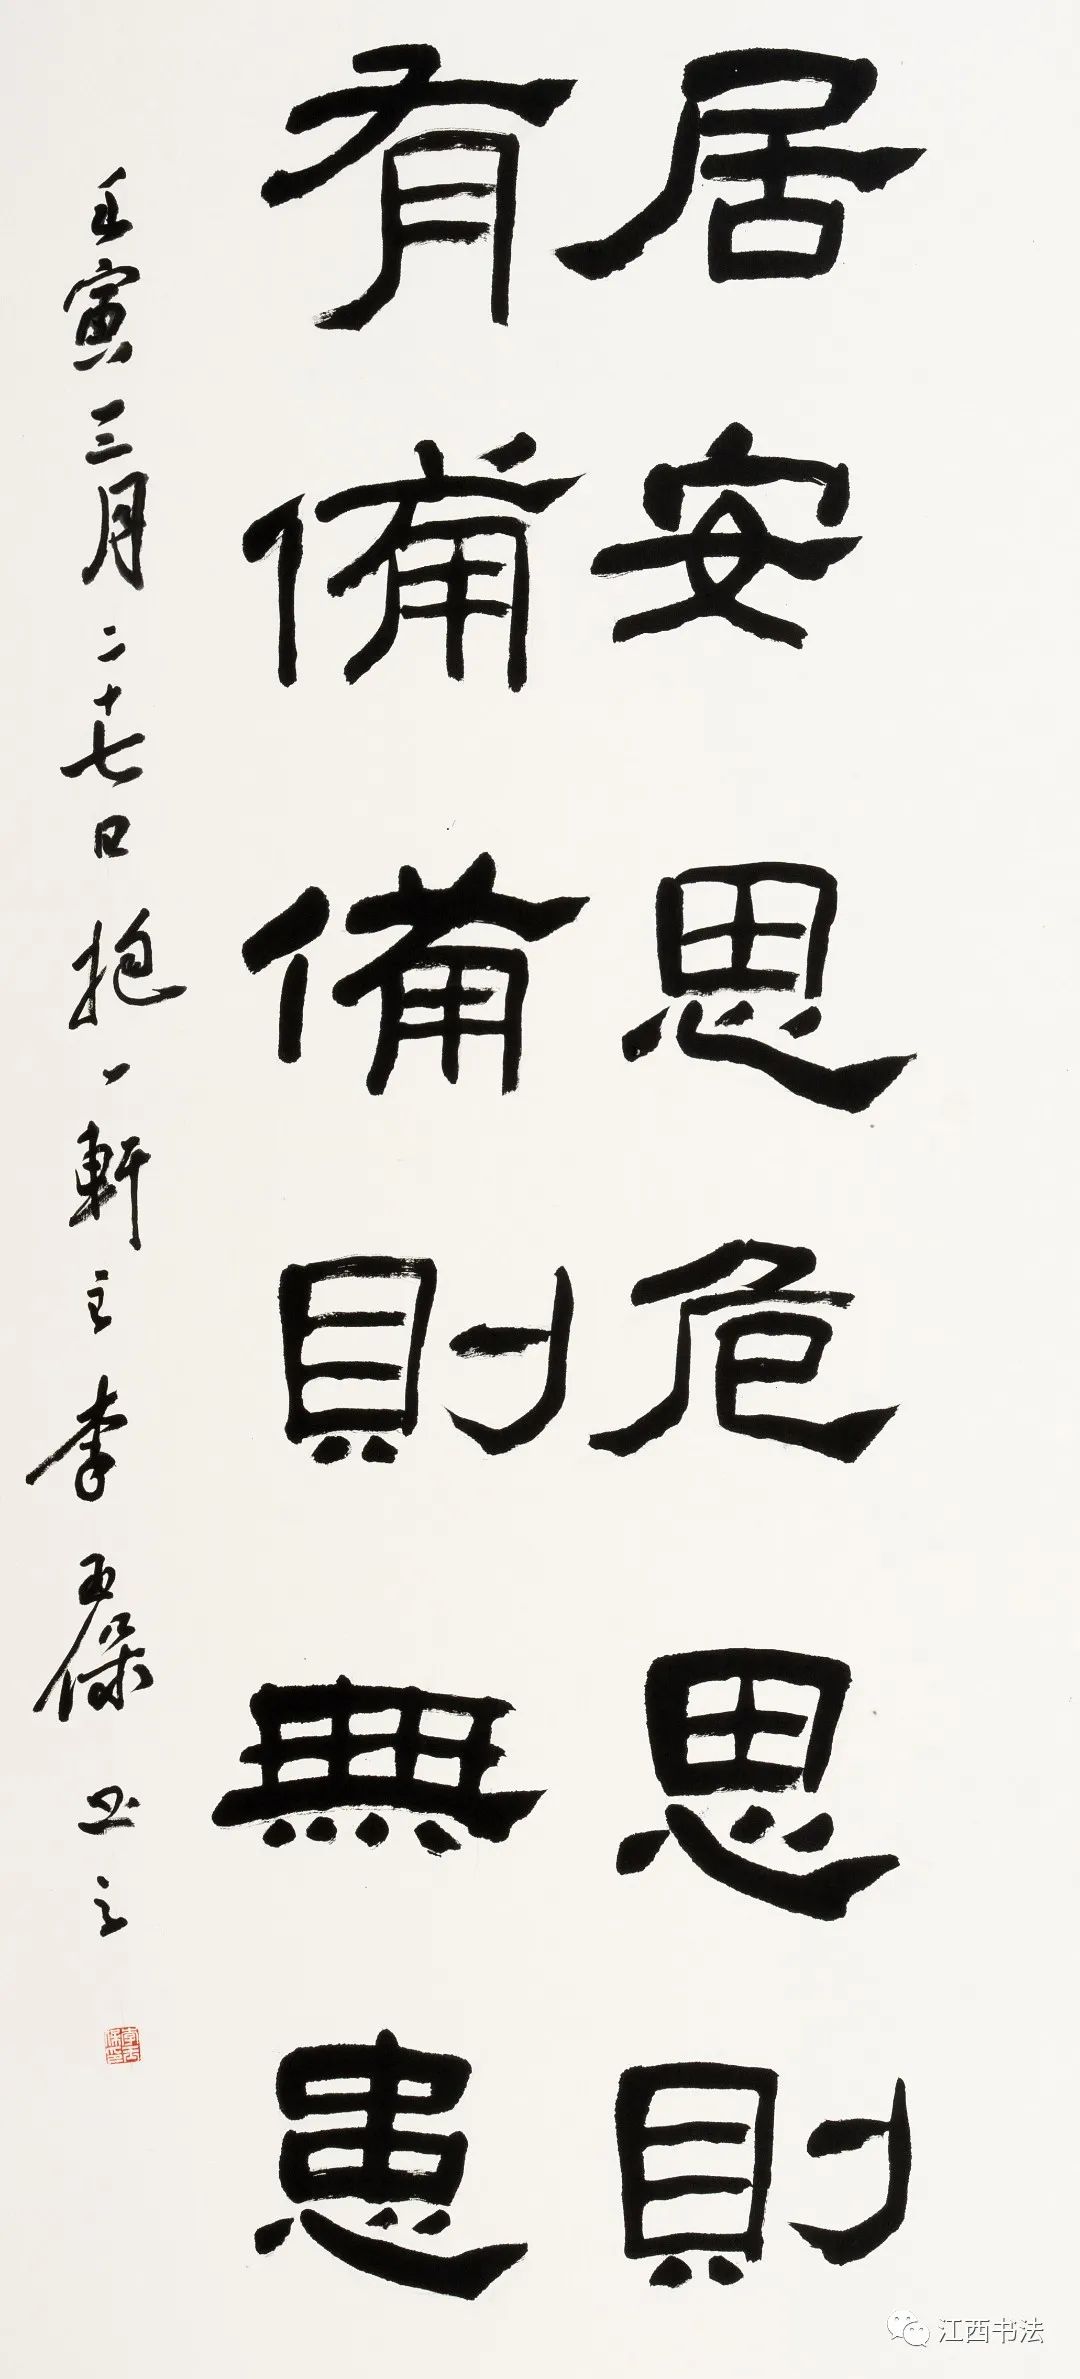 居安思危思則
有備備則無患
壬寅三月二十七日抱一軒主李五保書之
江西书法